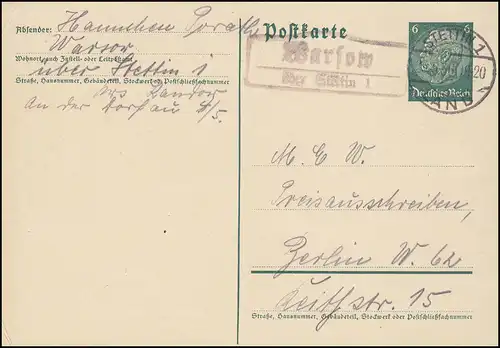 Absender: Hannchen Porath
Warsow
Wohnort, auch Zustell- oder Leitpostamt
über Stettin 1
Straße, Hausnummer, Gebäudeteil, Stockwerk od. Postschließfachnummer
Krs Randow
An der Dorfau 4/5.
Postkarte
Warsow
über Stettin 1
STETTIN 1
20
LAND
6 6
Deutsches Reich
M. E. W.
Preisausschreiben
Berlin W. 62
Keithstr. 15
Straße, Hausnummer, Gebäudeteil, Stockwerk oder Postschließfachnummer